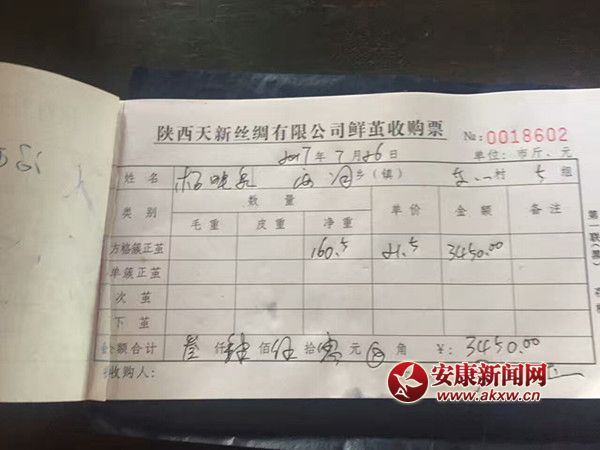 陕西天新丝绸有限公司鲜茧收购票 №:0018602
2017年7月26日 单位:市斤、元
姓名 杨 乡(镇) 村 5组
类别 数量 单价 金额 备注
毛重 皮重 净重
方格簇正茧 160.5 21.5 3450.00
单簇正茧
次茧
下茧
金额合计 叁仟肆佰伍拾零元 角 ¥:3450.00
收购人:
第一联(黑)
安康新闻网
www.akxw.cn